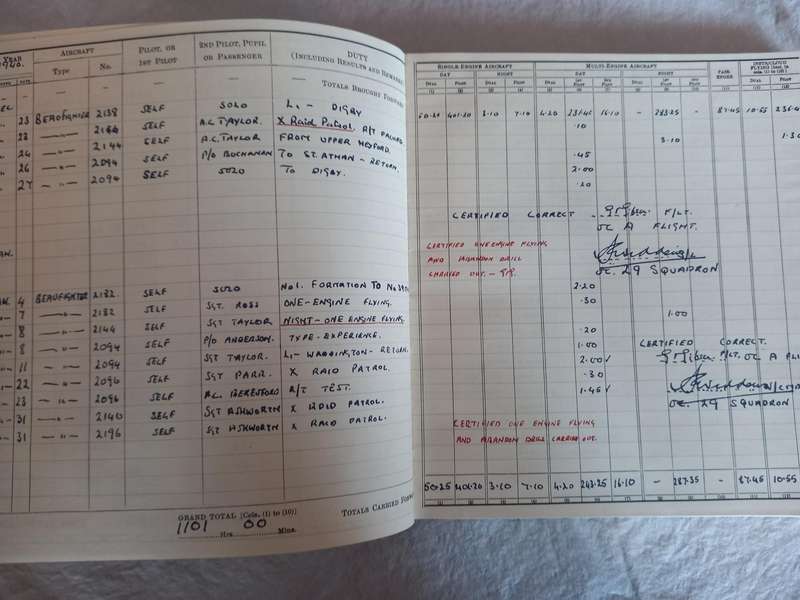 YEAR AIRCRAFT PILOT, OR 2ND PILOT, PUPIL DUTY
1940. Type No. 1ST PILOT OR PASSENGER (INCLUDING RESULTS AND REMARKS
TOTALS BROUGHT FORWARD
23 BEAUFIGHTER 2138 SELF SOLO L, - DIGBY
23 —"— 2144 SELF A.C. TAYLOR. X Raid Patrol. R/T FAILURE
24 —"— 2144 SELF A.C. TAYLOR FROM UPPER HEYFORD.
26 —"— 2094 SELF P/O BUCHANAN TO ST. ATHAN - RETURN.
27 —"— 2094 SELF SOLO TO DIGBY.
4 BEAUFIGHTER 2182. SELF SOLO No1. FORMATION TO
7 —"— 2182 SELF SGT. ROSS ONE-ENGINE FLYING.
8 —"— 2144 SELF SGT TAYLOR NIGHT-ONE ENGINE FLYING.
8 —"— 2094 SELF P/O ANDERSON. TYPE-EXPERIENCE.
11 —"— 2094 SELF SGT TAYLOR. L, - WADDINGTON - RETURN.
22 —"— 2096 SELF SGT PARR. X RAID PATROL.
23 —"— 2096 SELF A.C. BERESFORD R/T TEST.
31 —"— 2140 SELF SGT ASHWORTH X RAID PATROL.
31 —"— 2196 SELF SGT ASHWORTH X RAID PATROL.
GRAND TOTAL [Cols. (1) to (10)] TOTALS CARRIED FORWARD
1101 Hrs. 00 Mins.
SINGLE-ENGINE AIRCRAFT MULTI-ENGINE AIRCRAFT PASS-ENGER
DAY NIGHT DAY NIGHT
DUAL PILOT DUAL PILOT DUAL 1ST PILOT 2ND PILOT DUAL 1ST PILOT 2ND PILOT DUAL PILOT
(1) (2) (3) (4) (5) (6) (7) (8) (9) (10) (11) (12) (13)
50.25 401.20 3.10 7.10 4.20 16.10 - 283.25 - 87.45 10.55
.10
3.10
.45
2.00
.20
CERTIFIED CORRECT F/LT.
OC A FLIGHT.
CERTIFIED ONE ENGINE FLYING
AND ABANDON DRILL
CARRIED OUT.
OC. 29 SQUADRON
2.20
.30
1.00
.20
1.00 CERTIFIED CORRECT.
2.00 F/LT. OC A
.30
1.45
OC. 29 SQUADRON
CERTIFIED ONE ENGINE FLYING
AND ABANDON DRILL CARRIED OUT.
50.25 401.20 3.10 7.10 4.20 243.25 16.10 - 287.35 - 87.45 10.55